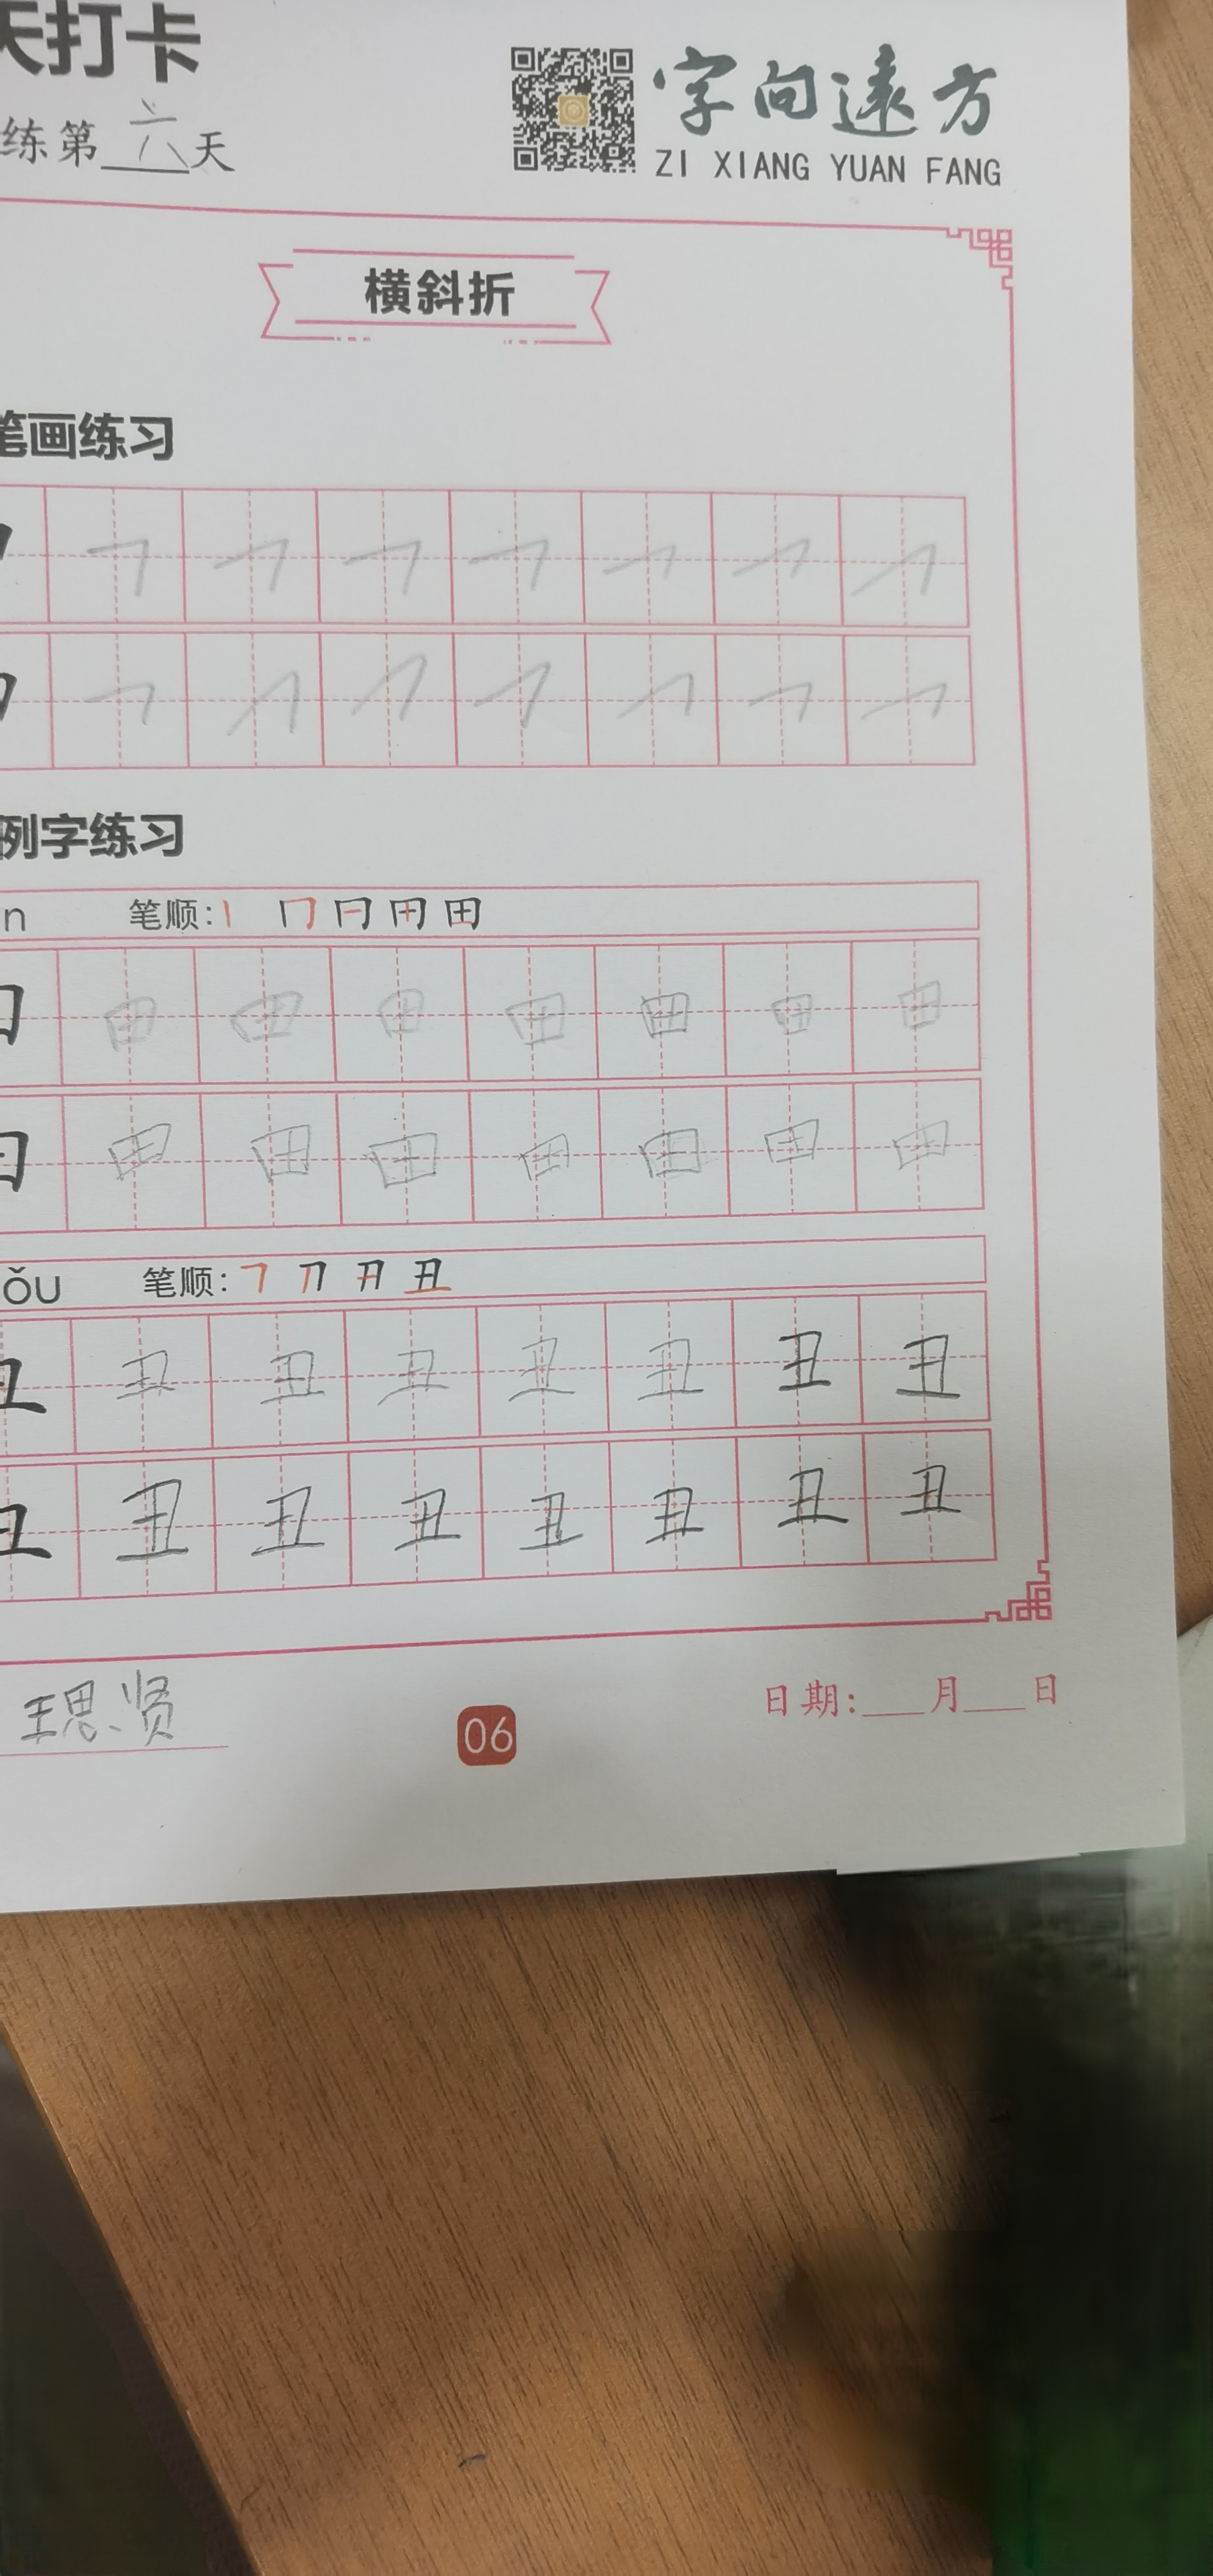 天打卡
练第六天
字向遠方
ZI XIANG YUAN FANG
横斜折
笔画练习
例字练习
n 笔顺:丨 冂 冃 田 田
田 田 田 田 田 田 田
田 田 田 田 田 田 田
ǒu 笔顺:㇕ 刀 丑 丑
丑 丑 丑 丑 丑 丑 丑 丑
丑 丑 丑 丑 丑 丑 丑 丑
王思贤
06
日期:___月___日